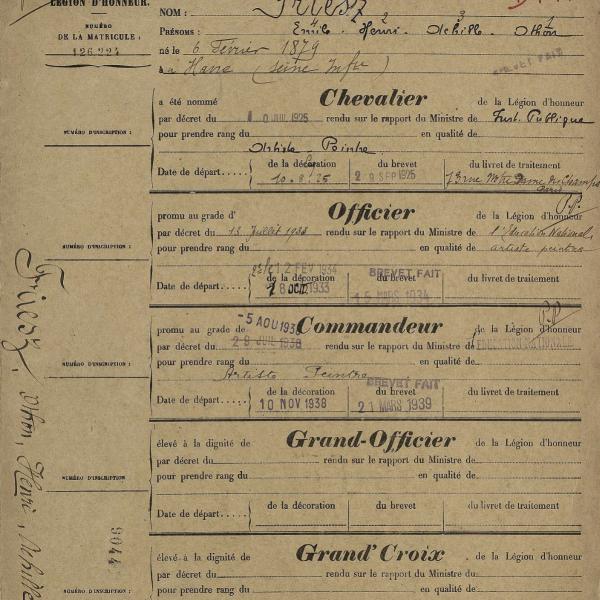 LÉGION D'HONNEUR.
NUMÉRO
DE LA MATRICULE :
126.224
NOM : Friesz
PRÉNOMS : Emile 4 Henri 2 Achille 3 Othon 1
né le 6 Février 1879
à Havre (Seine Infre)
BREVET FAIT
NUMÉRO D'INSCRIPTION :
a été nommé Chevalier de la Légion d'honneur
par décret du 10 JUIL 1925 rendu sur le rapport du Ministre de Inst. Publique
pour prendre rang du en qualité de
Artiste Peintre
Date de départ..... de la décoration du brevet du livret de traitement
10.8.25 28 SEP 1925 73 rue Notre Dame des Champs
Paris
P.P.
NUMÉRO D'INSCRIPTION :
promu au grade d' Officier de la Légion d'honneur
par décret du 13 Juillet 1933 rendu sur le rapport du Ministre de l'Education Nationale
pour prendre rang du en qualité de artiste peintre
12 FEV 1934 BREVET FAIT
Date de départ..... de la décoration du brevet du livret de traitement
OCT 1933 15 MARS 1934
P.P.
NUMÉRO D'INSCRIPTION :
-5 AOU 1938
promu au grade de Commandeur de la Légion d'honneur
par décret du 29 JUIL 1938 rendu sur le rapport du Ministre de EDUCATION NATIONALE
pour prendre rang du en qualité de
Artiste Peintre
BREVET FAIT
Date de départ..... de la décoration du brevet du livret de traitement
10 NOV 1938 21 MARS 1939
NUMÉRO D'INSCRIPTION
élevé à la dignité de Grand-Officier de la Légion d'honneur
par décret du rendu sur le rapport du Ministre de
pour prendre rang du en qualité de
Date de départ..... de la décoration du brevet du livret de traitement
NUMÉRO D'INSCRIPTION :
élevé à la dignité de Grand'Croix de la Légion d'honneur
par décret du rendu sur le rapport du Ministre du
pour prendre rang du en qualité de
Friesz, Othon, Henri, Achille
9044